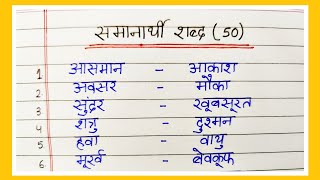 समानार्थी शब्द (50)
1 आसमान - आकाश
2 अवसर - मौका
3 सुंदर - खूबसूरत
4 शत्रु - दुश्मन
5 हवा - वायु
6. मूर्ख - बेवकूफ